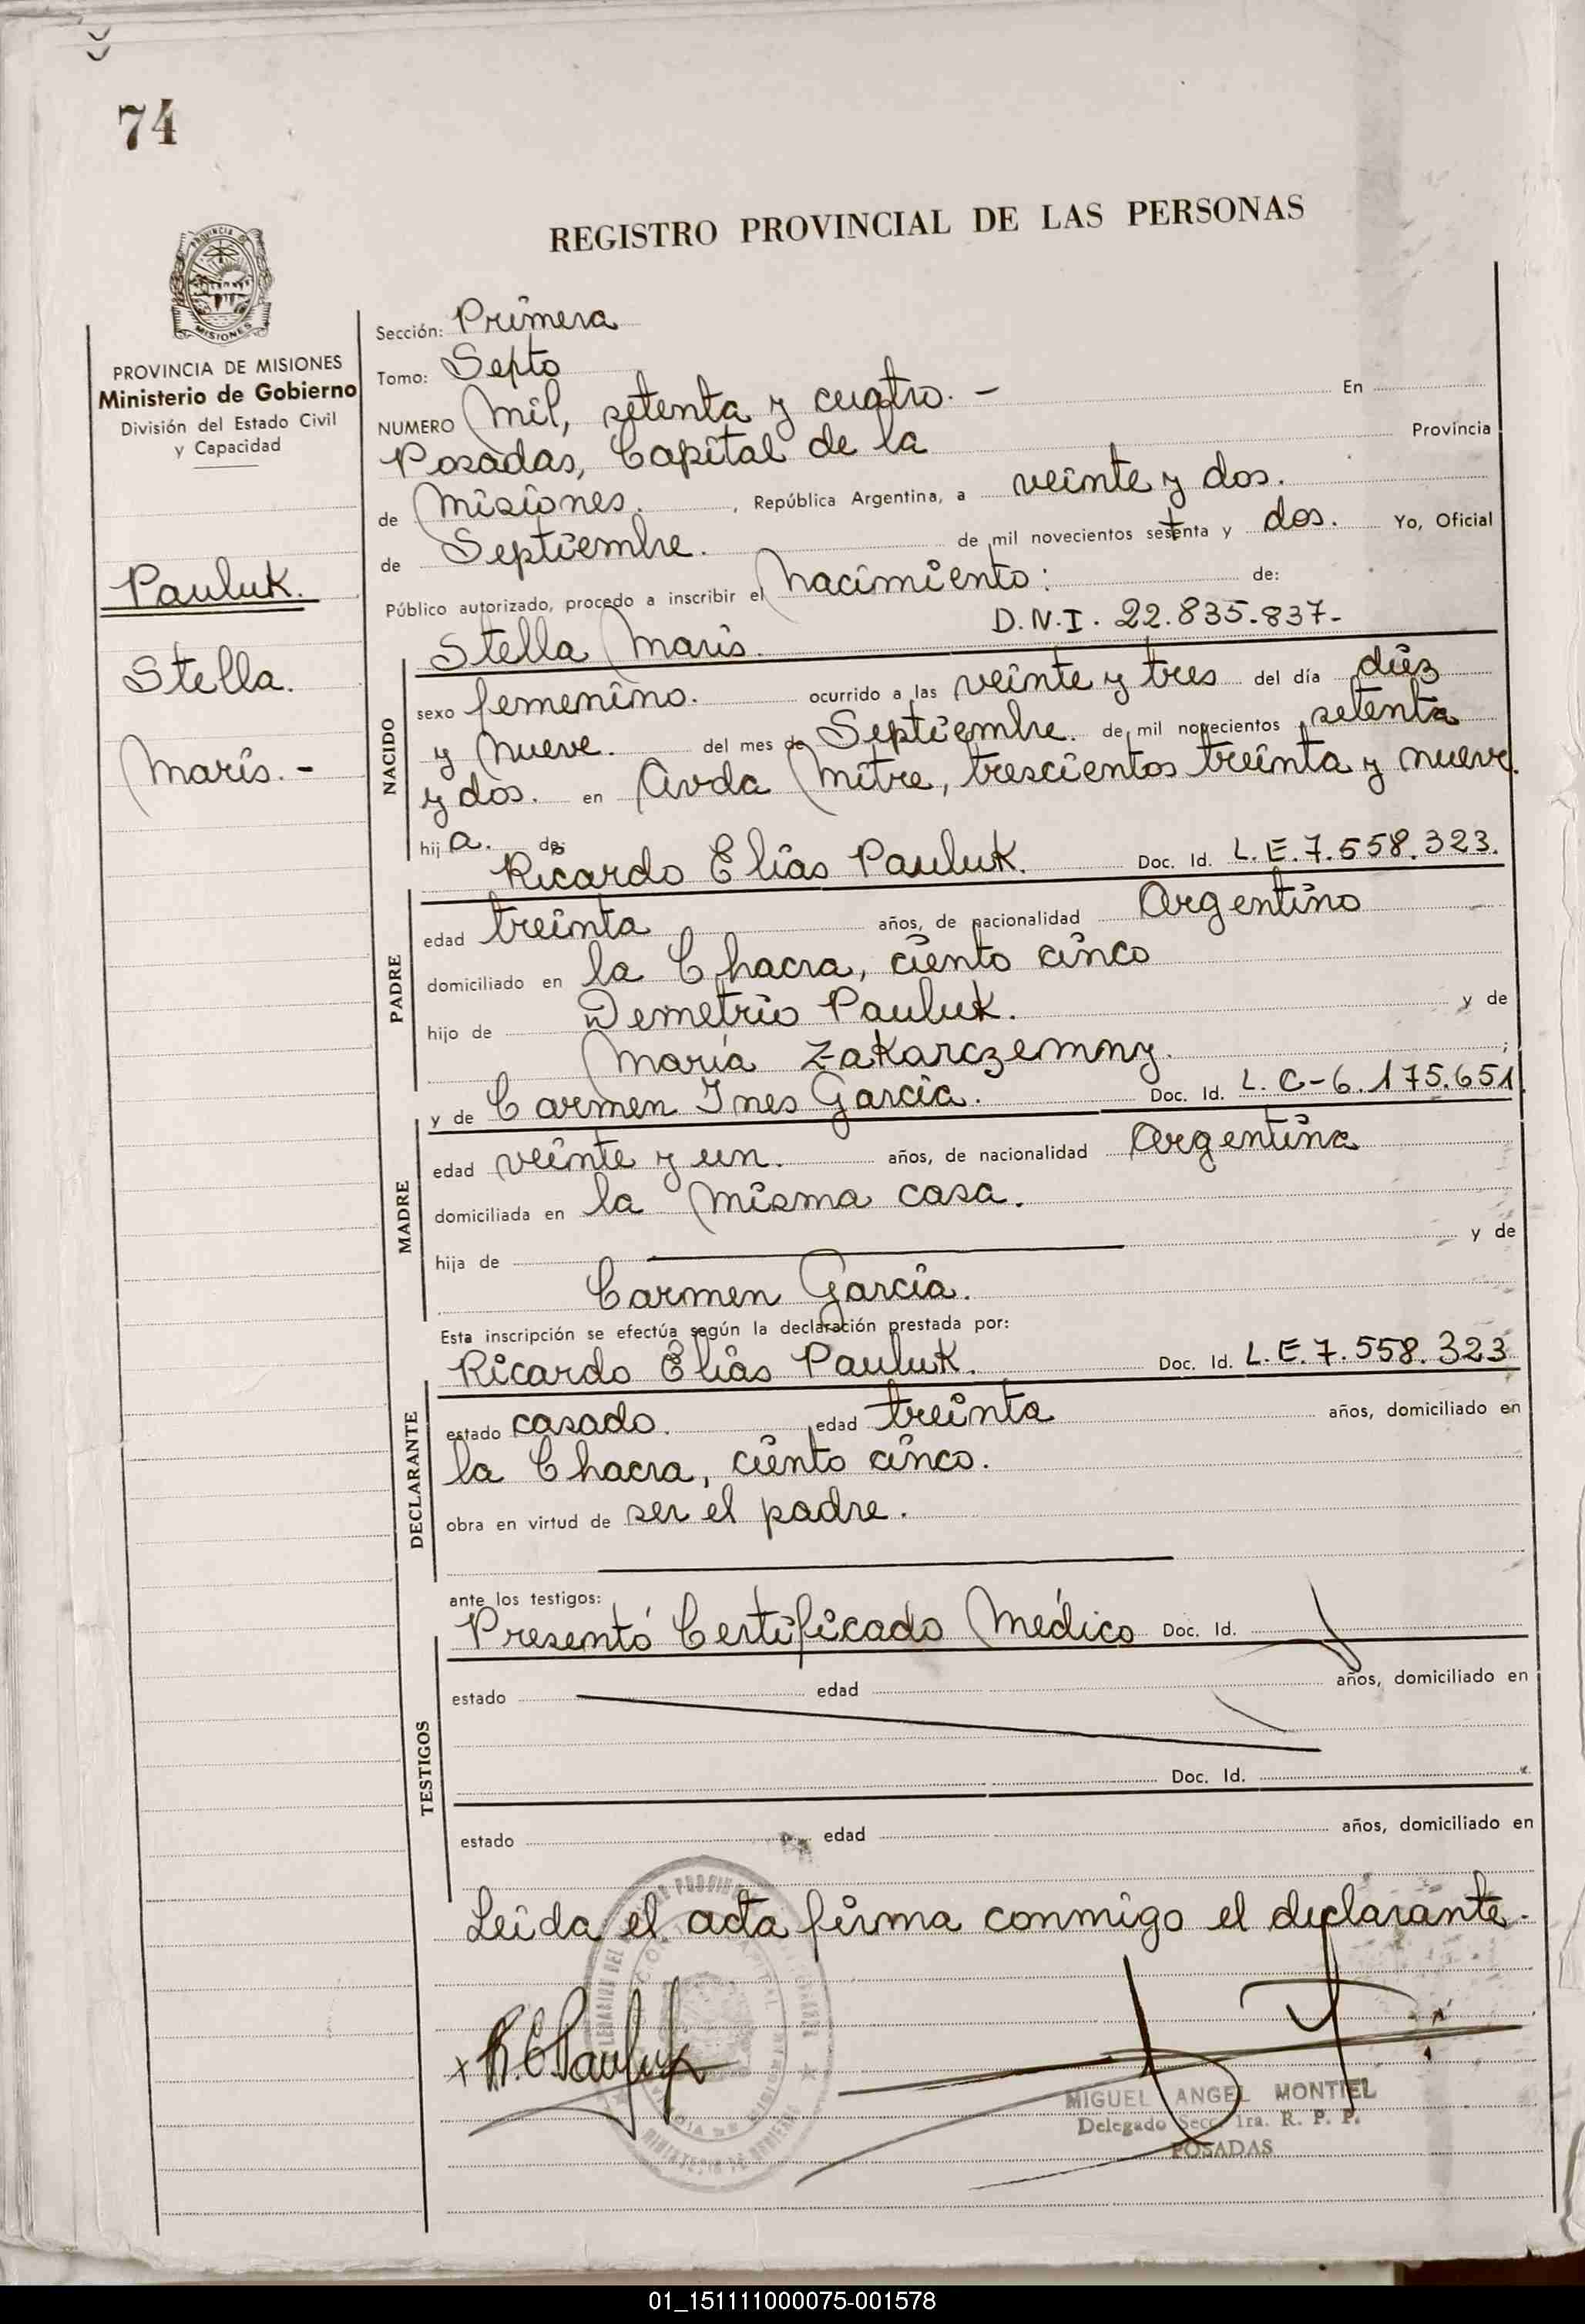 74
REGISTRO PROVINCIAL DE LAS PERSONAS
MISIONES
PROVINCIA DE MISIONES
Ministerio de Gobierno
División del Estado Civil
y Capacidad
Pauluk.
Stella.
Maris.-
Sección: Primera
Tomo: Septo
NUMERO Mil, setenta y cuatro. - En
Posadas, Capital de la Provincia
de Misiones. , República Argentina, a veinte y dos.
de Septiembre. de mil novecientos setenta y dos. Yo, Oficial
Público autorizado, procedo a inscribir el Nacimiento: de:
D.N.I. 22.835.837-
Stella Maris.
NACIDO
sexo femenino. ocurrido a las veinte y tres del día diez
y nueve. del mes de Septiembre. de mil novecientos setenta
y dos. en Avda Mitre, trescientos treinta y nueve.
hij a. de:
Ricardo Elías Pauluk. Doc. Id. L.E.7.558.323.
PADRE
edad treinta años, de nacionalidad Argentino
domiciliado en la Chacra, ciento cinco
hijo de Demetrio Pauluk. y de
María Zakarczemny. ;
y de Carmen Ines García. Doc. Id. L.C-6.175.651
MADRE
edad veinte y un. años, de nacionalidad Argentina
domiciliada en la misma casa.
hija de y de
Carmen García.
Esta inscripción se efectúa según la declaración prestada por:
Ricardo Elías Pauluk. Doc. Id. L.E.7.558.323
DECLARANTE
estado casado. edad treinta años, domiciliado en
la Chacra, ciento cinco.
obra en virtud de ser el padre.
ante los testigos:
Presentó Certificado Médico Doc. Id.
TESTIGOS
estado edad años, domiciliado en
Doc. Id.
estado edad años, domiciliado en
Leida el acta firma conmigo el declarante.
x R.E.Pauluk
MIGUEL ANGEL MONTIEL
Delegado Secc. 1ra. R. P. P.
POSADAS
01_151111000075-001578